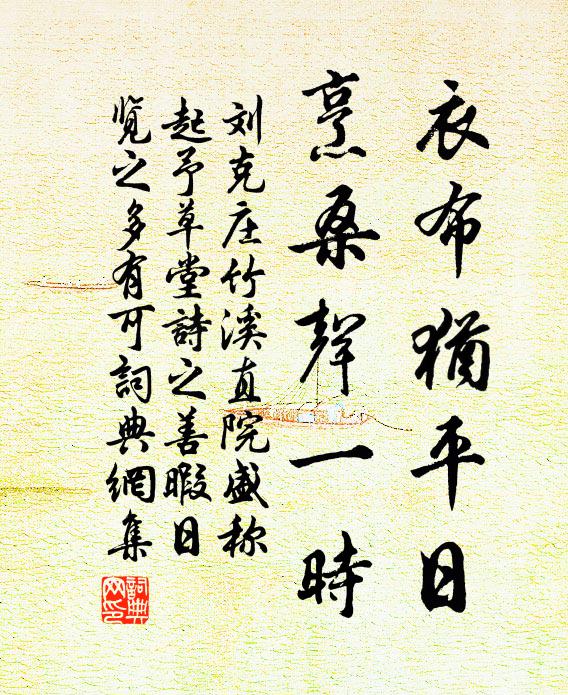 衣布猶平日
烹桑聲一時
刘克庄竹溪直院盛称
起予草堂詩之善暇日
覽之多有可詞典網集
詞典
网印